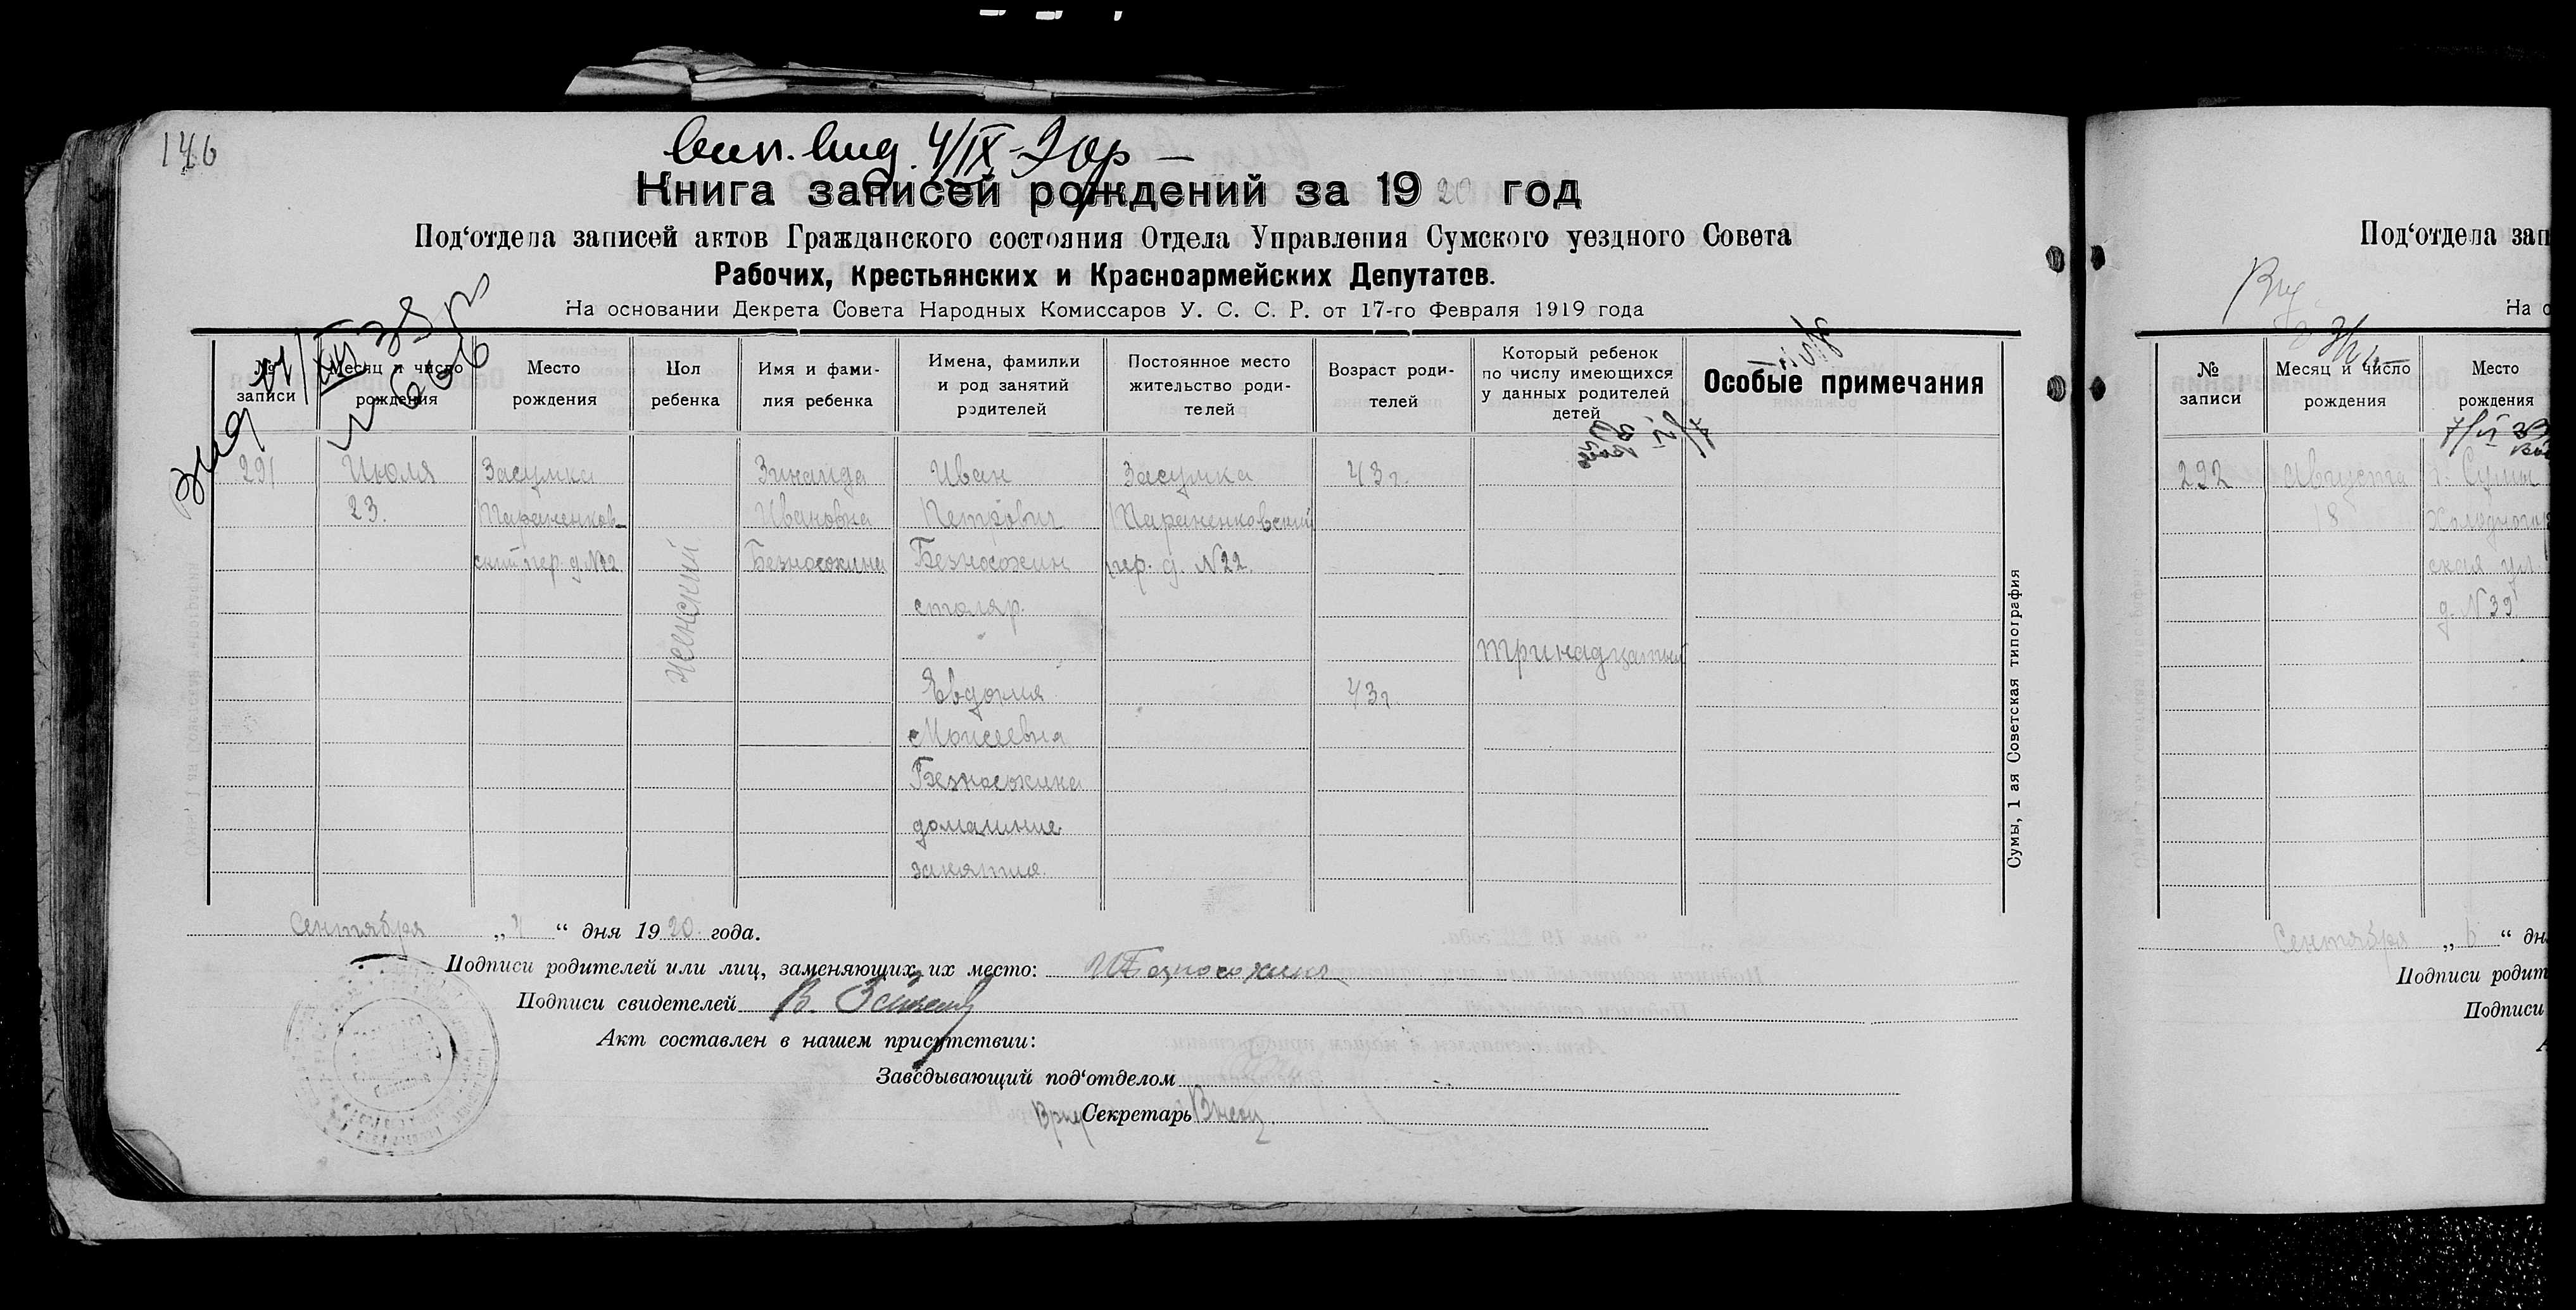 146
Вып. выд. 4/IX-20р —
Книга записей рождений за 1920 год
Под‘отдела записей актов Гражданского состояния Отдела Управления Сумского уездного Совета
Рабочих, Крестьянских и Красноармейских Депутатов.
На основании Декрета Совета Народных Комиссаров У. С. С. Р. от 17-го Февраля 1919 года
№ записи
Месяц и число рождения
Место рождения
Пол ребенка
Имя и фами-
лия ребенка
Имена, фамилии
и род занятий
родителей
Постоянное место
жительство роди-
телей
Возраст роди-
телей
Который ребенок
по числу имеющихся
у данных родителей
детей
Особые примечания
291
Июля
23.
Засумка
ский пер. д. №22
женский
Зинаида
Ивановна
Безносокина
Иван
Петрович
Безносокин
столяр.
Евдокия
Моисеевна
Безносокина
домашние
занятия.
Засумка
пер. д. №22.
43 г.
43 г
тринадцатый
Сумы, 1 ая Советская типография
Сентября „ 4 “ дня 1920 года.
Подписи родителей или лиц, заменяющих их место:
Подписи свидетелей В.
Акт составлен в нашем присутствии:
Заведывающий под‘отделом
Секретарь
Под‘отдела зап
На о
№ записи
Месяц и число рождения
Место рождения
292
Августа
18
г. Сумы
ская ул.
д. №39
Сентября „ 6 “ дн
Подписи родит
Подписи